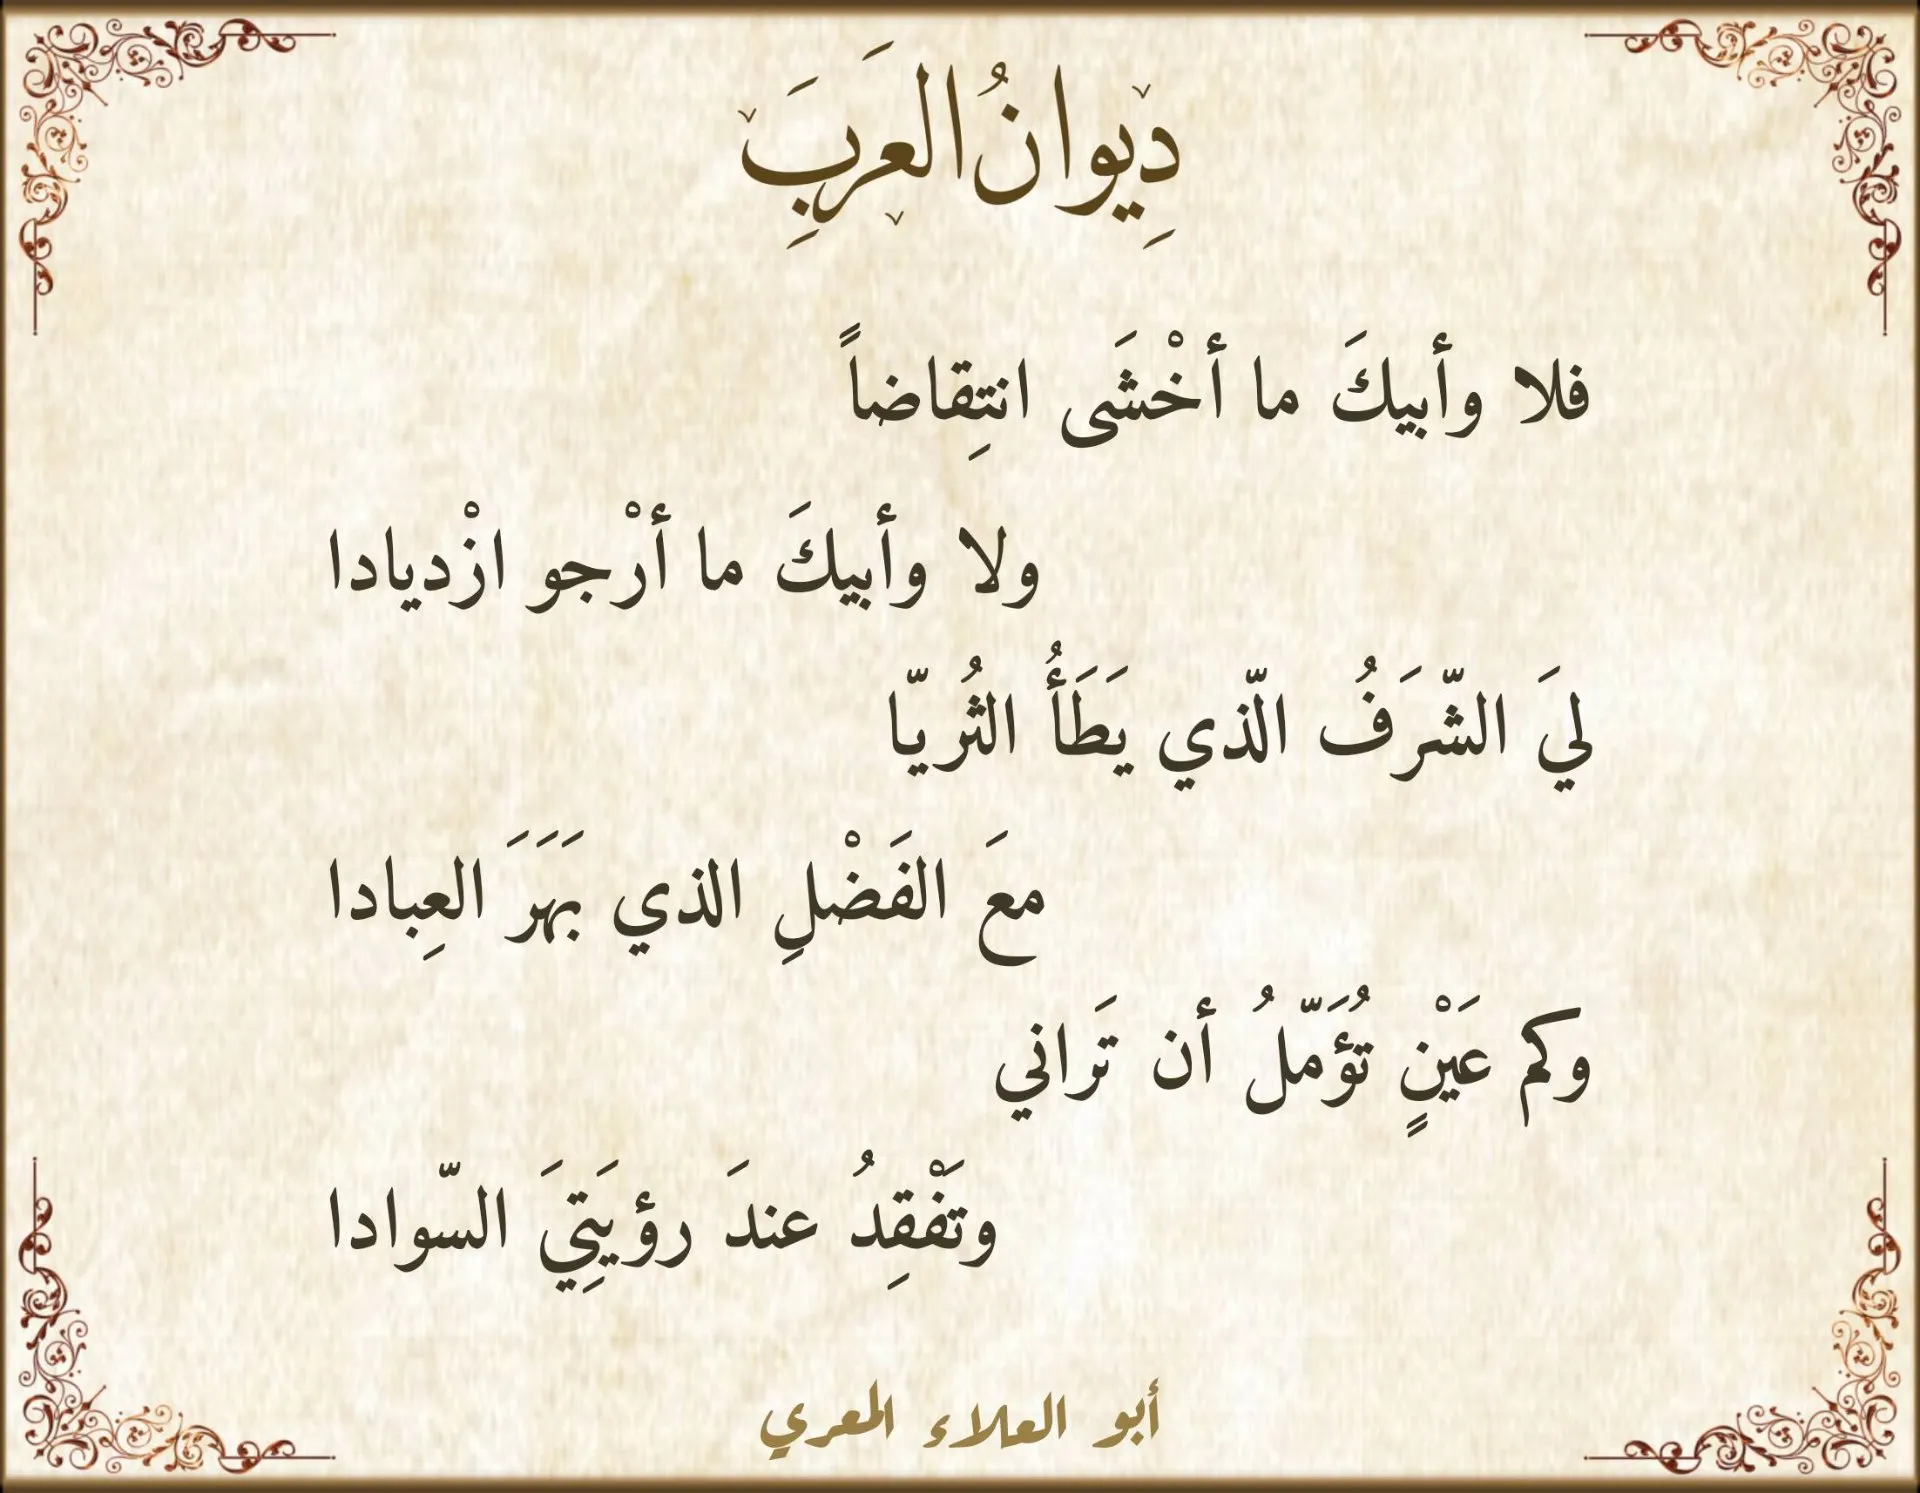 دِيوانُ العَرَبِ
فلا وأبيكَ ما أخْشَى انتِقاضاً
ولا وأبيكَ ما أرْجو ازْديادا
ليَ الشّرَفُ الّذي يَطَأُ الثُريّا
معَ الفَضْلِ الذي بَهَرَ العِبادا
وكم عَيْنٍ تُؤَمّلُ أن تَراني
وتَفْقِدُ عندَ رؤيَتِيَ السّوادا
أبو العلاء المعري